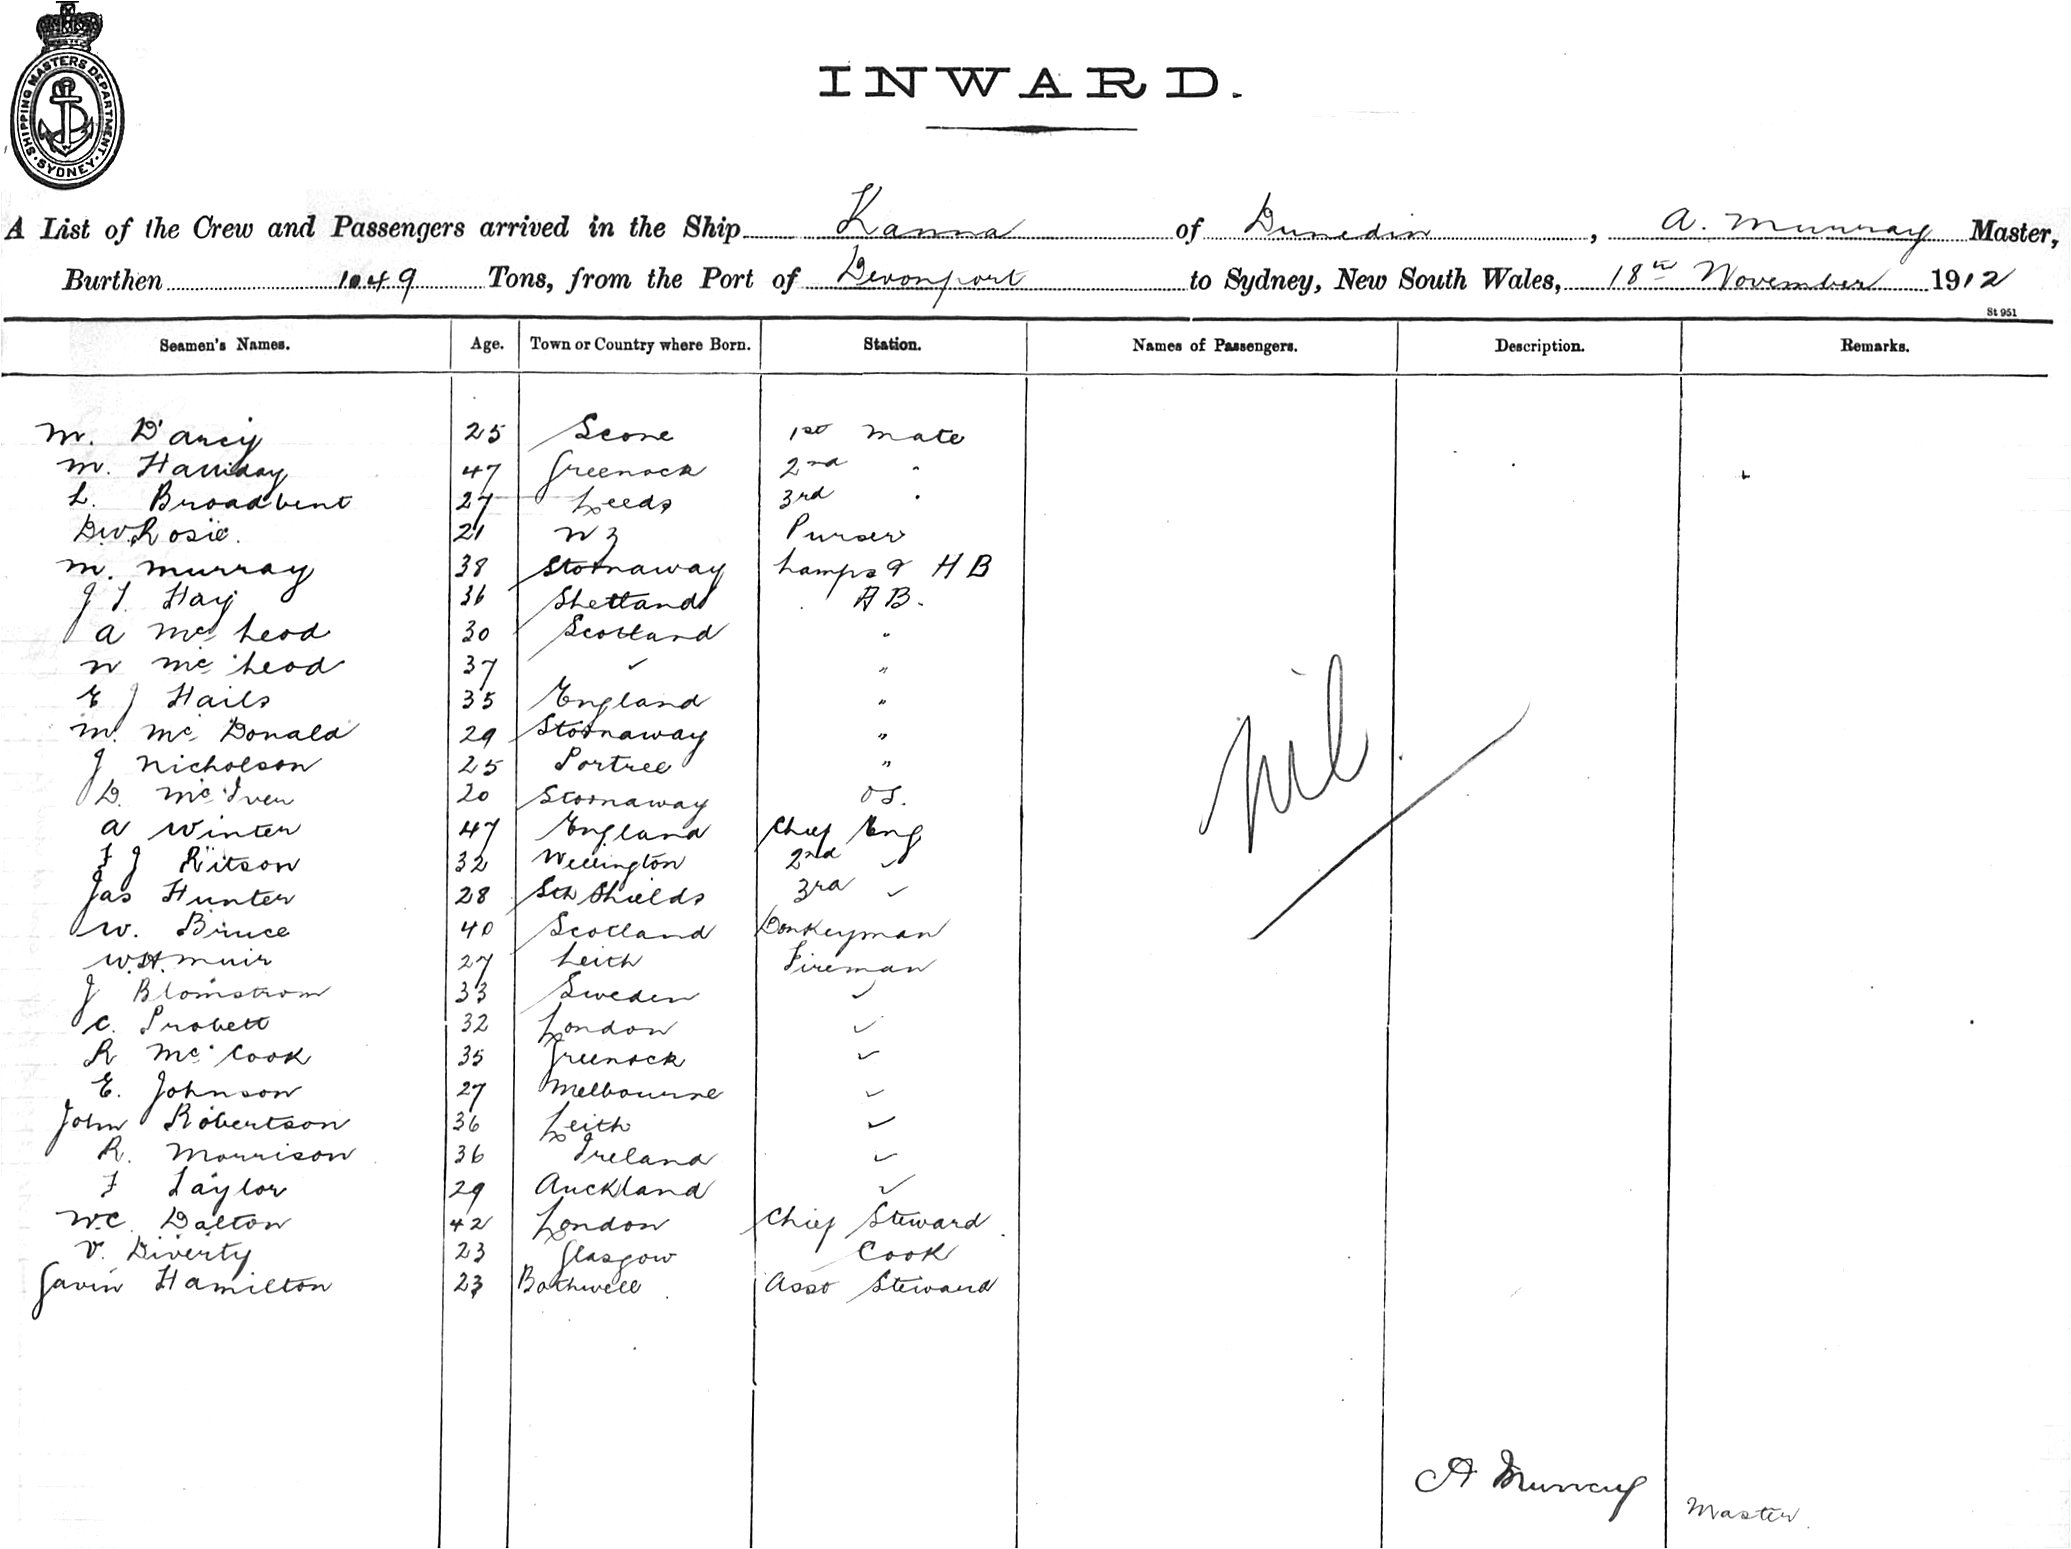 SHIPPING MASTERS DEPARTMENT · SYDNEY ·
INWARD.
A List of the Crew and Passengers arrived in the Ship Kanna of Dunedin, A. Murray Master,
Burthen 1049 Tons, from the Port of Devonport to Sydney, New South Wales, 18th November 1912
St 951
Seamen's Names. Age. Town or Country where Born. Station. Names of Passengers. Description. Remarks.
M. D'arcy 25 Scone 1st Mate
M. Halliday 47 Greenock 2nd "
L. Broadbent 27 Leeds 3rd "
D.W. Rosie. 21 N Z Purser
M. Murray 38 Stornaway Lamps & H B
J T Hay 36 Shetland A B.
A McLeod 30 Scotland "
N McLeod 37 " "
E J Hails 35 England "
M. McDonald 29 Stornaway "
J Nicholson 25 Portree "
D. McIver 20 Stornaway OS.
A Winter 47 England Chief Eng
F J Ritson 32 Wellington 2nd "
Jas Hunter 28 Sth Shields 3rd "
W. Bruce 40 Scotland Donkeyman
W.H. Muir 27 Leith Fireman
J Blomstrom 33 Sweden "
C. Probett 32 London "
R McCook 35 Greenock "
E. Johnson 27 Melbourne "
John Robertson 36 Leith "
R. Morrison 36 Ireland "
F Taylor 29 Auckland "
W.C. Dalton 42 London Chief Steward
V. Diverty 23 Glasgow Cook
Gavin Hamilton 23 Bothwell Asst Steward
Nil.
A Murray
Master.